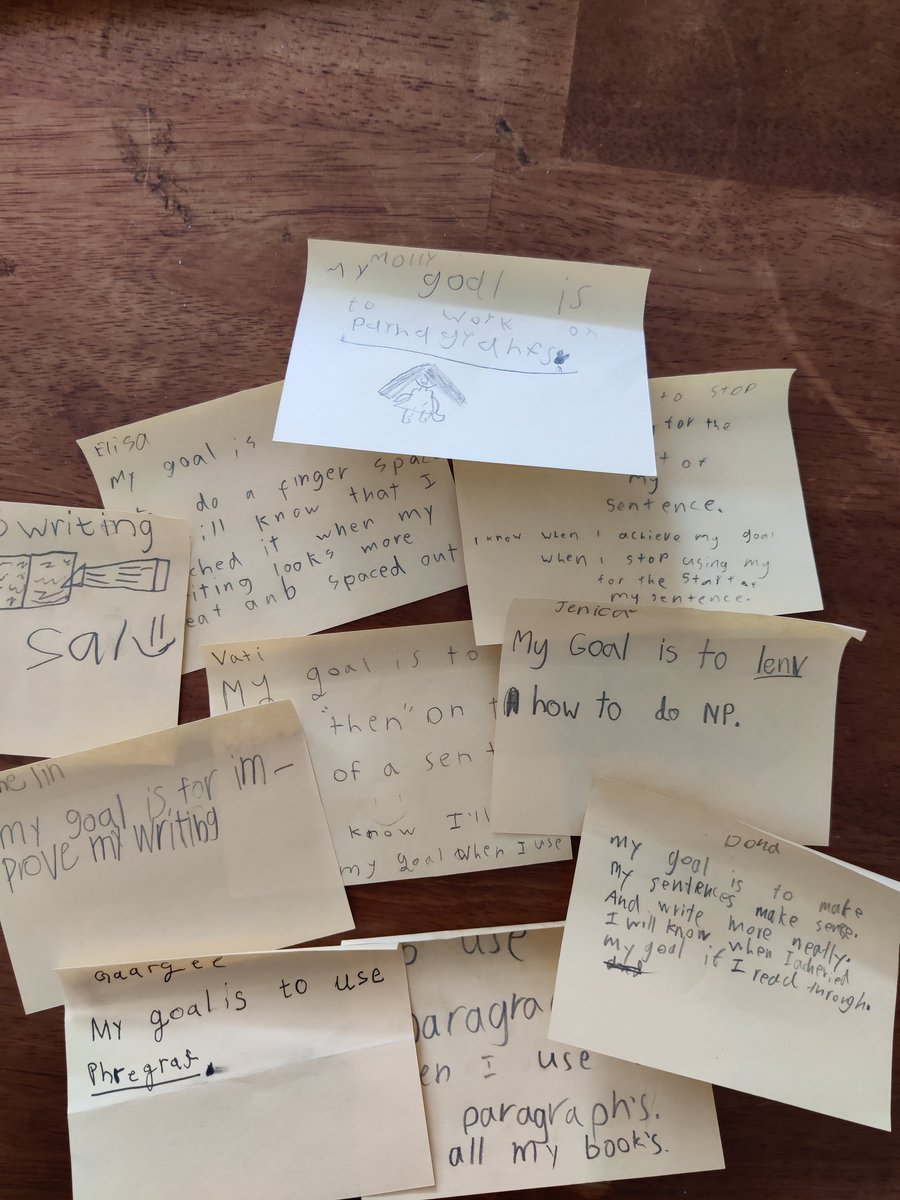 MOLLY
My goal is
to work on
parhagrahfs.
Elisa
My goal is
do a finger spac
ill know that I
ched it when my
iting looks more
eat anb spaced out
to STOP
for the
t of
My
sentence.
I know when I achieve my goal
when I stop using my
for the start of
my sentence.
writing
sal
Jenica
My Goal is to lenr
how to do NP.
Vati
My goal is to
"then" on t
of a sent
know I'll
my goal when I use
he lin
my goal is for im-
prove my writing
Dona
my goal is to make
My sentences make sense.
And write more neatly.
I will know when I acheried
my goal if I read through.
Gaargee
My goal is to use
Phregraf.
o use
paragra
en I use
paragraph's.
all my book's.